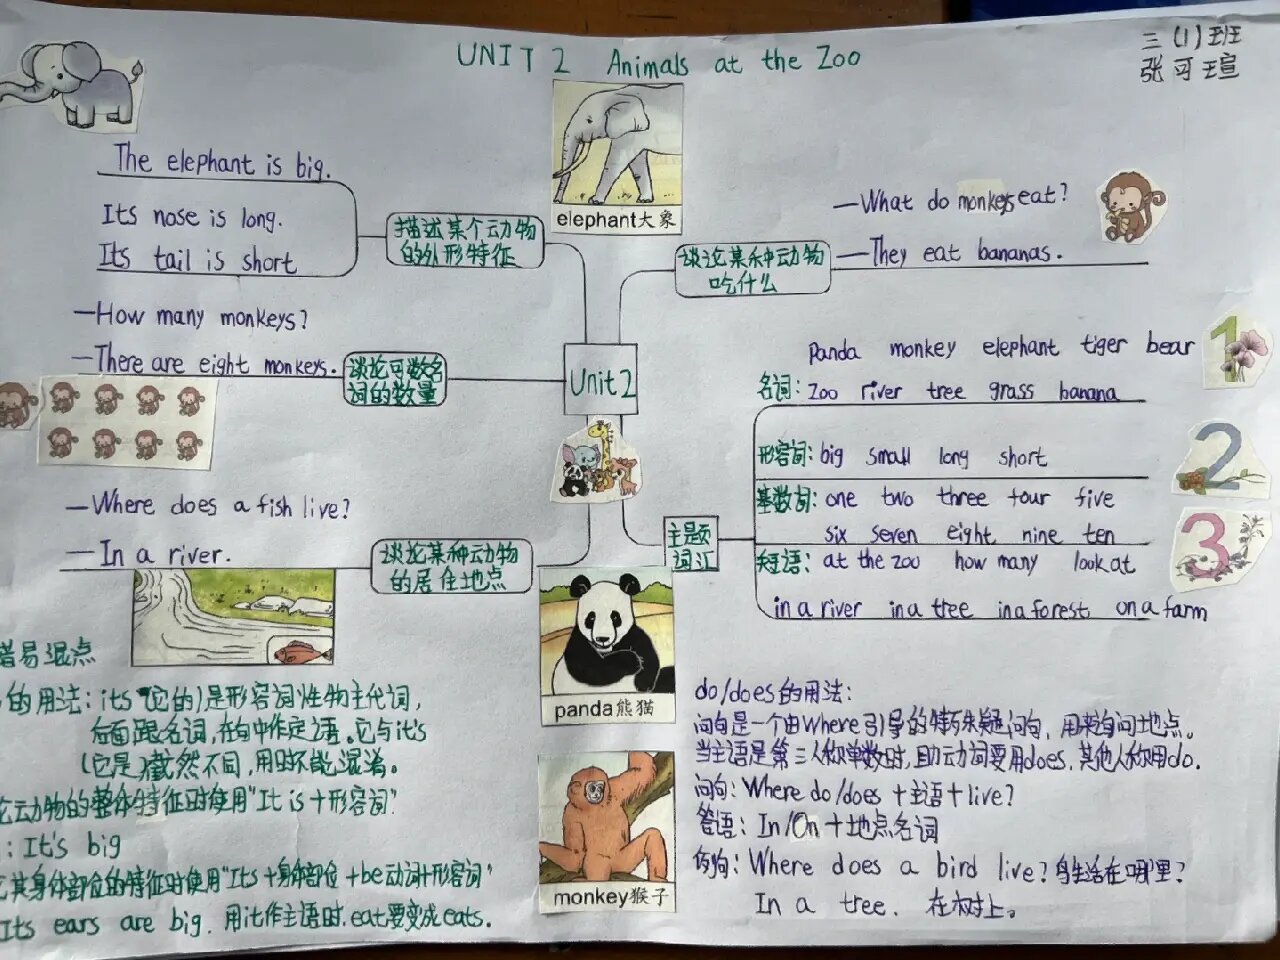 UNIT 2 Animals at the Zoo
三(1)班
张可瑄
The elephant is big.
Its nose is long.
Its tail is short
描述某个动物
的外形特征
elephant大象
—What do monkeys eat?
—They eat bananas.
谈论某种动物
吃什么
—How many monkeys?
—There are eight monkeys.
谈论可数名
词的数量
Unit2
Panda monkey elephant tiger bear
名词: Zoo river tree grass banana
形容词: big small long short
基数词: one two three four five
six seven eight nine ten
短语: at the zoo how many look at
in a river in a tree in a forest on a farm
主题
词汇
1
2
3
—Where does a fish live?
—In a river.
谈论某种动物
的居住地点
panda熊猫
monkey猴子
错易混点
的用法: its(它的)是形容词性物主代词,
后面跟名词,在句中作定语。它与it's
(它是)截然不同,用时不能混淆。
论动物的整体特征时使用"It is+形容词"
: It's big
其身体部位的特征时使用"Its+身体部位+be动词+形容词"
Its ears are big. 用it作主语时,eat要变成eats.
do/does的用法:
问句是一个由Where引导的特殊疑问句,用来询问地点。
当主语是第三人称单数时,助动词要用does,其他人称用do.
问句: Where do/does+主语+live?
答语: In/On+地点名词
例句: Where does a bird live? 鸟生活在哪里?
In a tree. 在树上。